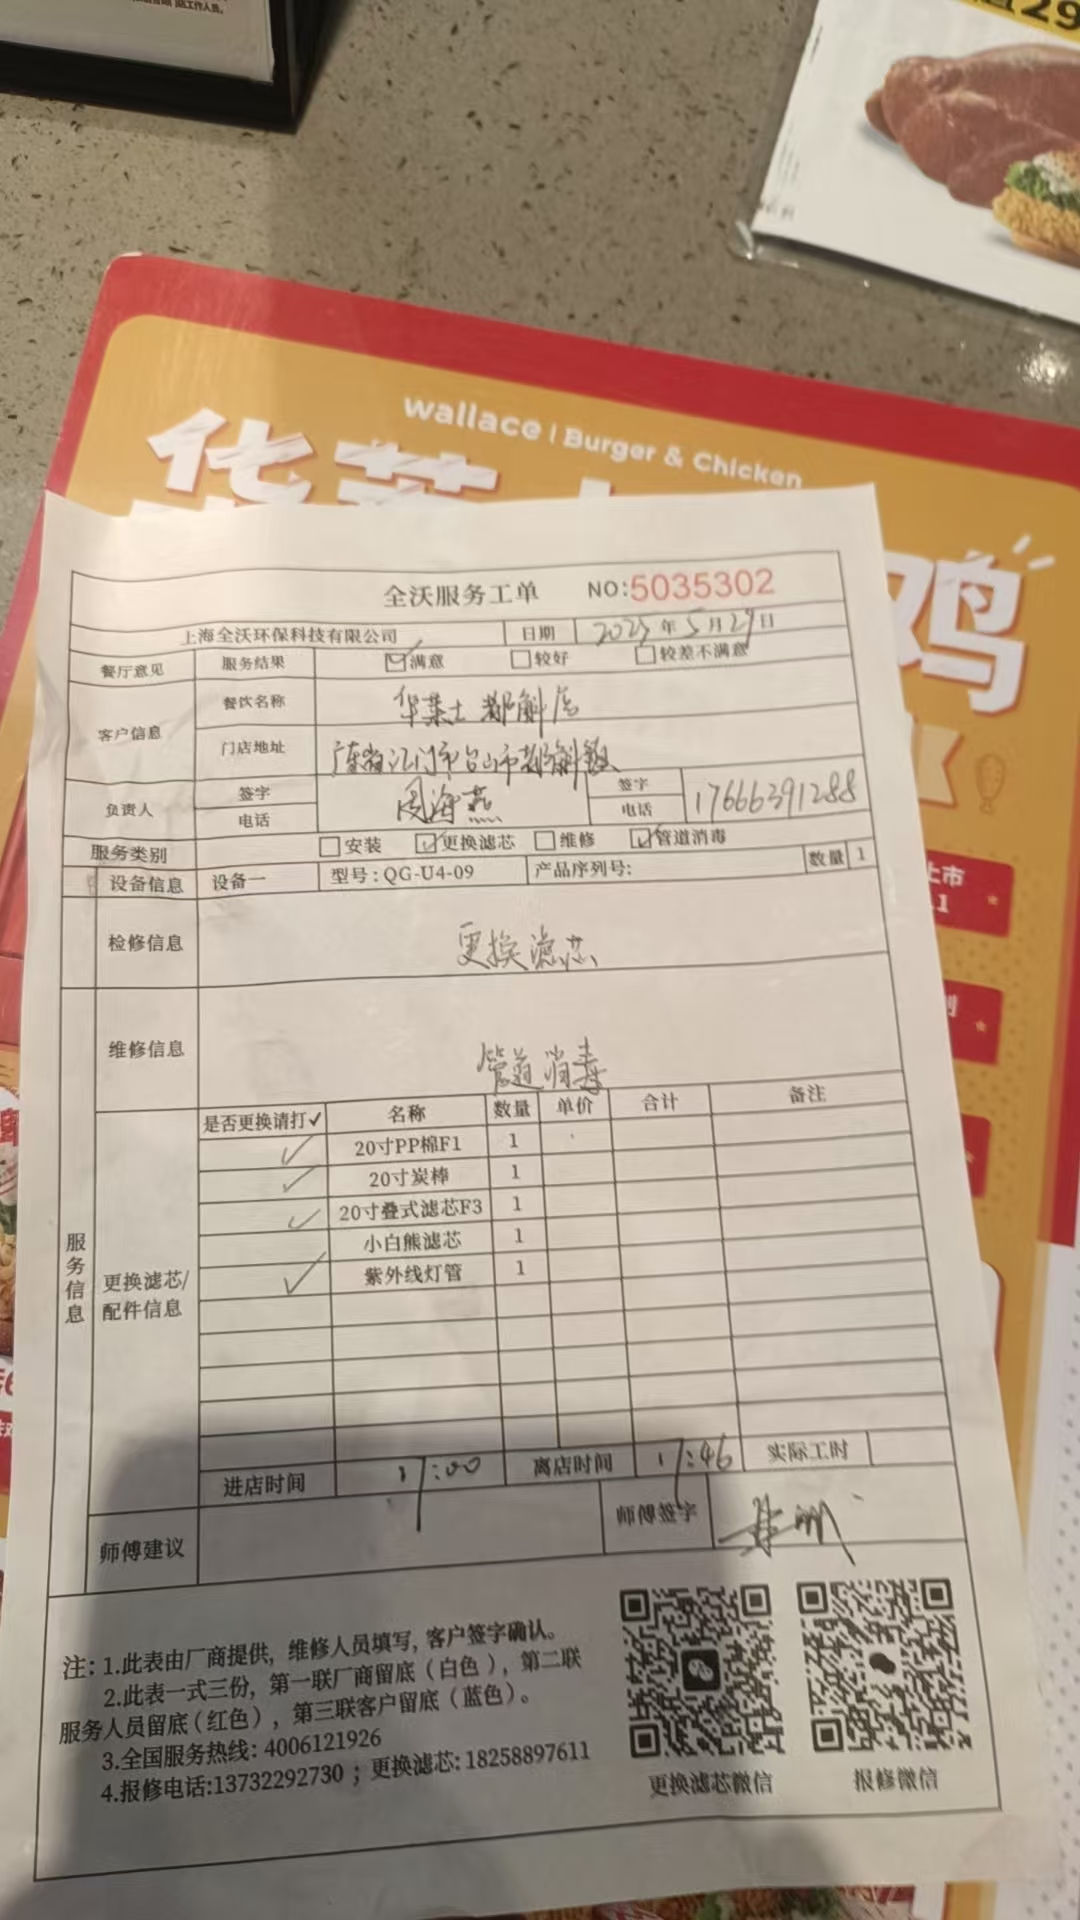 店工作人员。
29
wallace | Burger & Chicken
华莱士
鸡
上市
全沃服务工单 NO:5035302
上海全沃环保科技有限公司 日期 2025年5月29日
餐厅意见 服务结果 ☑满意 □较好 □较差不满意
客户信息 餐饮名称 华莱士都斛店
门店地址 广东省江门市台山市都斛镇
负责人 签字 电话 周海燕 签字 电话 17666391288
服务类别 □安装 ☑更换滤芯 □维修 ☑管道消毒
设备信息 设备一 型号:QG-U4-09 产品序列号: 数量 1
检修信息 更换滤芯
维修信息 管道消毒
服务信息
更换滤芯/配件信息
是否更换请打✓ 名称 数量 单价 合计 备注
✓ 20寸PP棉F1 1
✓ 20寸炭棒 1
✓ 20寸叠式滤芯F3 1
小白熊滤芯 1
✓ 紫外线灯管 1
进店时间 17:00 离店时间 17:46 实际工时
师傅建议 师傅签字
注:1.此表由厂商提供,维修人员填写,客户签字确认。
2.此表一式三份,第一联厂商留底(白色),第二联
服务人员留底(红色),第三联客户留底(蓝色)。
3.全国服务热线:4006121926
4.报修电话:13732292730;更换滤芯:18258897611
更换滤芯微信 报修微信